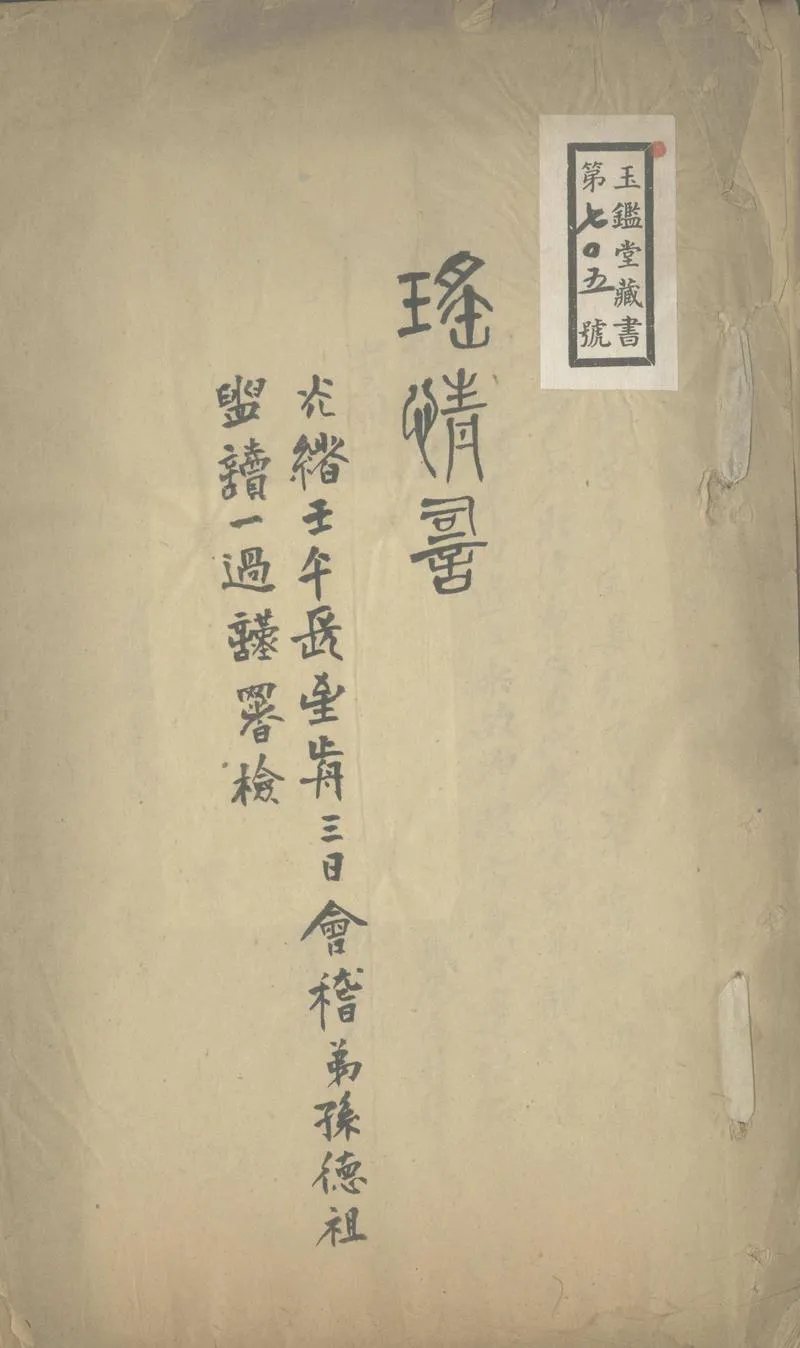 玉鑑堂藏書
第七〇五號
瑤情詞
光緒壬午長至前三日會稽弟孫德祖
盥讀一過謹署檢